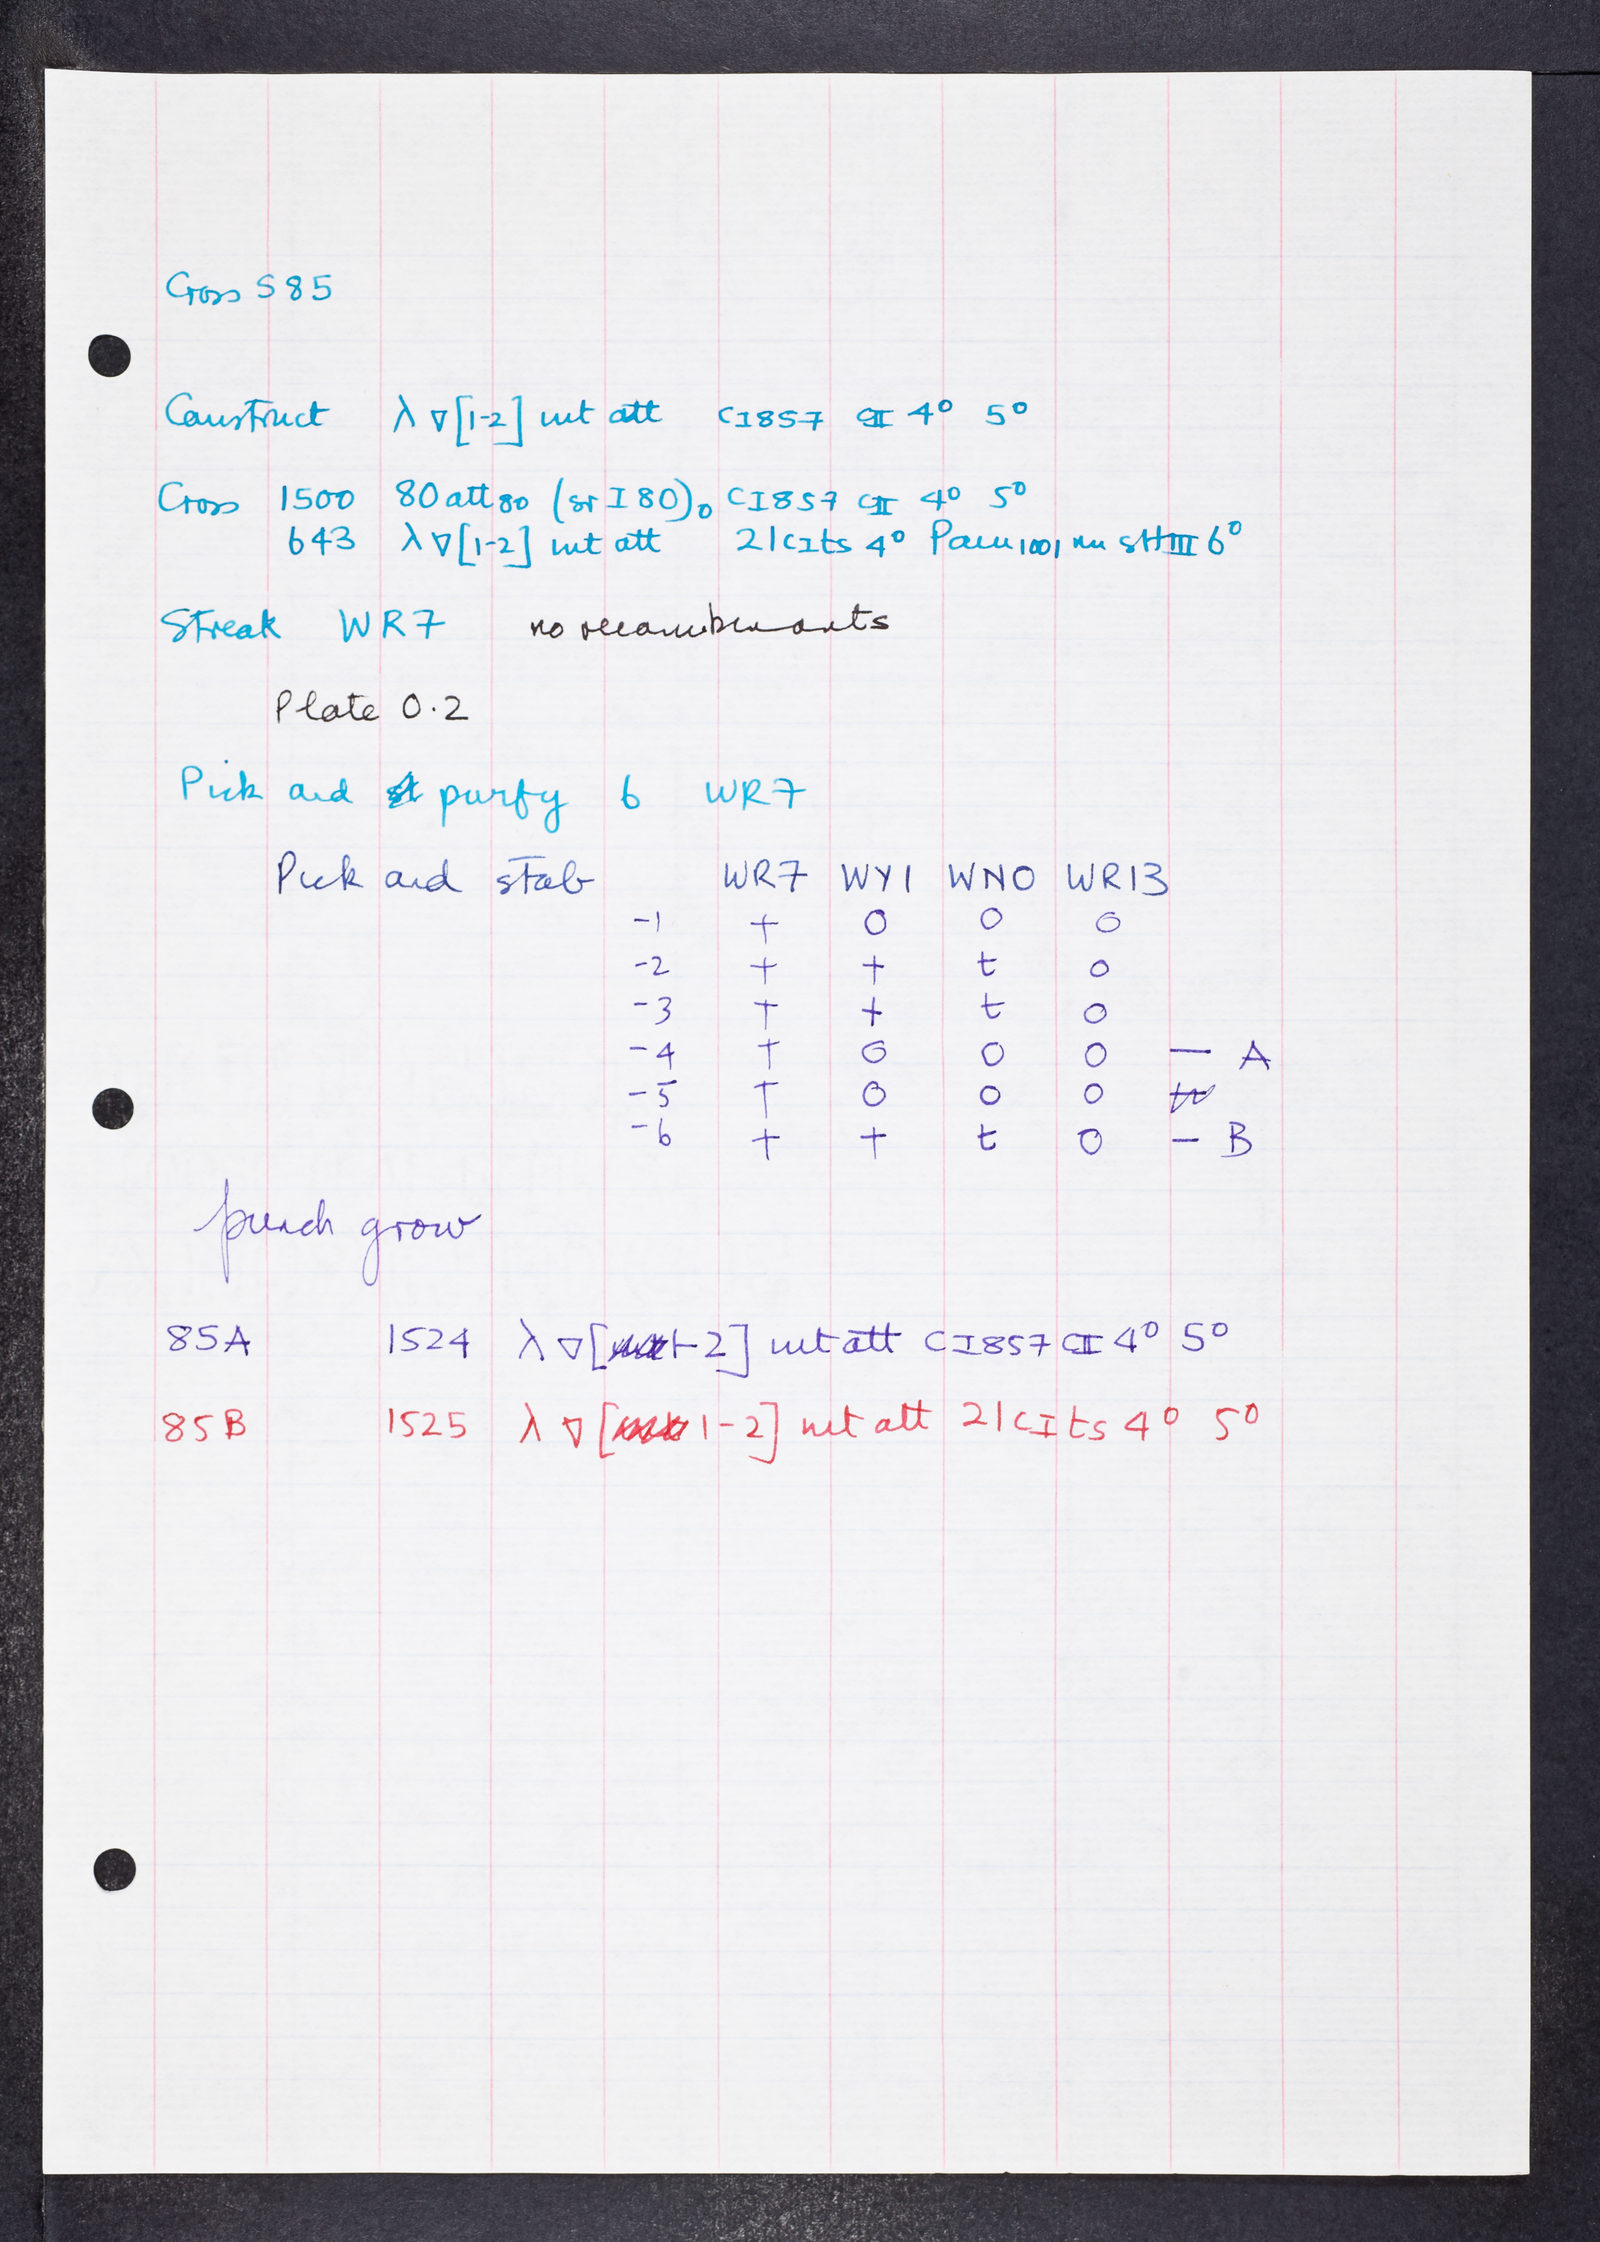 Cross S85
Construct λ ▽[1-2] int att CI857 CII 4° 5°
Cross 1500 80 att80 (sr I 80)0 CI857 CII 4° 5°
643 λ ▽[1-2] int att 21 CIts 4° Pam1001 nin sHIII 6°
Streak WR7 no recombinants
Plate 0.2
Pick and purfy 6 WR7
Pick and stab WR7 WY1 WNO WR13
-1 + 0 0 0
-2 + + t 0
-3 + + t 0
-4 + 0 0 0 — A
-5 + 0 0 0
-6 + + t 0 — B
punch grow
85A 1524 λ ▽[1-2] int att CI857 CII 4° 5°
85B 1525 λ ▽[1-2] int att 21 CIts 4° 5°